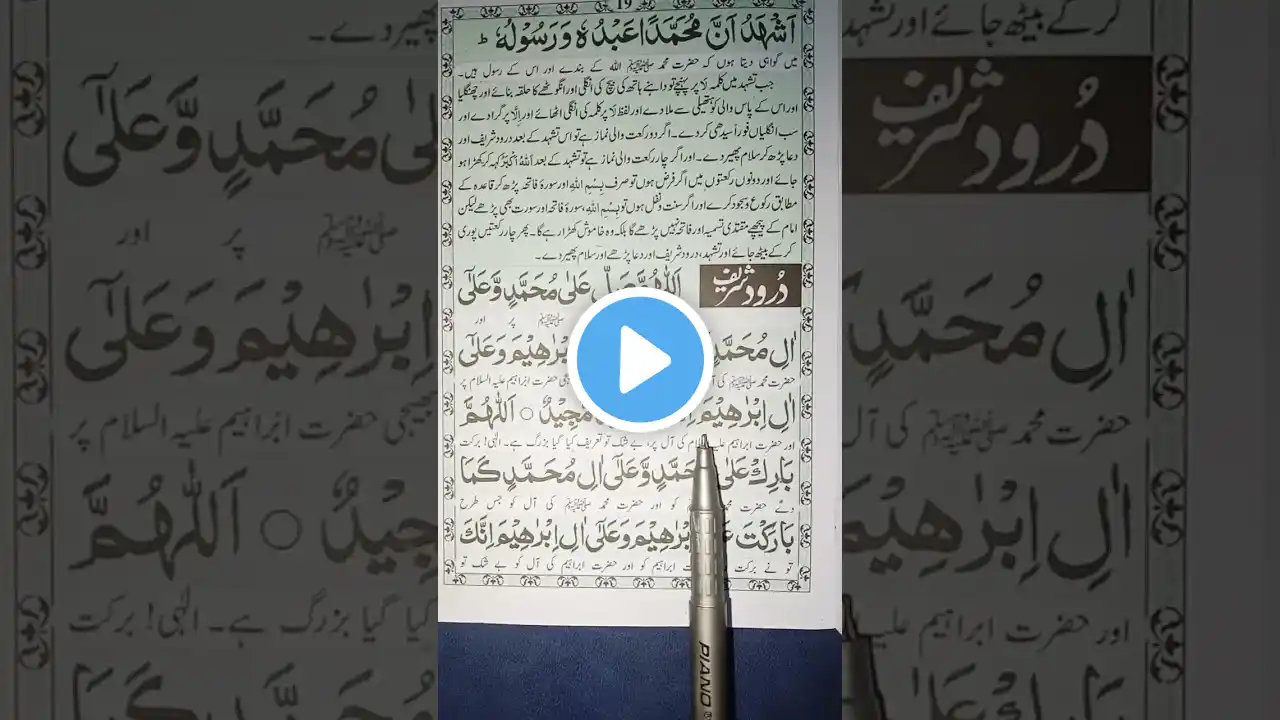 19
اَشْهَدُ اَنَّ مُحَمَّدًا عَبْدُهٗ وَرَسُوْلُهٗ ؕ
میں گواہی دیتا ہوں کہ حضرت محمد ﷺ اللہ کے بندے اور اس کے رسول ہیں۔
جب تشہد میں کلمہ لَا پر پہنچے تو داہنے ہاتھ کی بیچ کی انگلی اور انگوٹھے کا حلقہ بنائے اور چھنگلیا
اور اس کے پاس والی کو ہتھیلی سے ملا دے اور لفظ لَا پر کلمہ کی انگلی اٹھائے اور اِلَّا پر گرا دے اور
سب انگلیاں فوراً سیدھی کر دے۔ اگر دو رکعت والی نماز ہے تو اس تشہد کے بعد درود شریف اور
دعا پڑھ کر سلام پھیر دے۔ اور اگر چار رکعت والی نماز ہے تو تشہد کے بعد اَللّٰهُ اَكْبَرُ کہہ کر کھڑا ہو
جائے اور دونوں رکعتوں میں اگر فرض ہوں تو صرف بِسْمِ اللهِ اور سورۃ فاتحہ پڑھ کر قاعدہ کے
مطابق رکوع و سجود کرے اور اگر سنت و نفل ہوں تو بِسْمِ اللهِ، سورۃ فاتحہ اور سورت بھی پڑھے لیکن
امام کے پیچھے مقتدی تسمیہ اور فاتحہ نہیں پڑھے گا بلکہ وہ خاموش کھڑا رہے گا۔ پھر چار رکعتیں پوری
کر کے بیٹھ جائے اور تشہد، درود شریف اور دعا پڑھے اور سلام پھیر دے۔
درود شریف
اَللّٰهُمَّ صَلِّ عَلٰى مُحَمَّدٍ وَّعَلٰٓى
ﷺ پر اور
اٰلِ مُحَمَّدٍ اِبْرٰهِيْمَ وَعَلٰٓى
حضرت محمد ﷺ کی آل حضرت ابراہیم علیہ السلام پر
اٰلِ اِبْرٰهِيْمَ مَّجِيْدٌ ○ اَللّٰهُمَّ
اور حضرت ابراہیم کی آل پر، بے شک تو تعریف کیا گیا بزرگ ہے۔ الٰہی! برکت
بَارِكْ عَلٰى مُحَمَّدٍ وَّعَلٰٓى اٰلِ مُحَمَّدٍ كَمَا
دے حضرت ﷺ کو اور حضرت محمد ﷺ کی آل کو جس طرح
بَارَكْتَ اِبْرٰهِيْمَ وَعَلٰٓى اٰلِ اِبْرٰهِيْمَ اِنَّكَ
تو نے برکت کو اور حضرت ابراہیم کی آل کو بے شک تو
PIANO